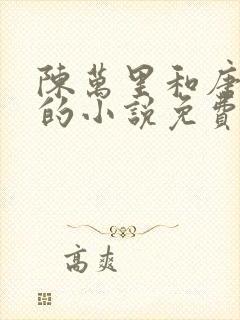 陳萬里和唐
的小說免費
高爽